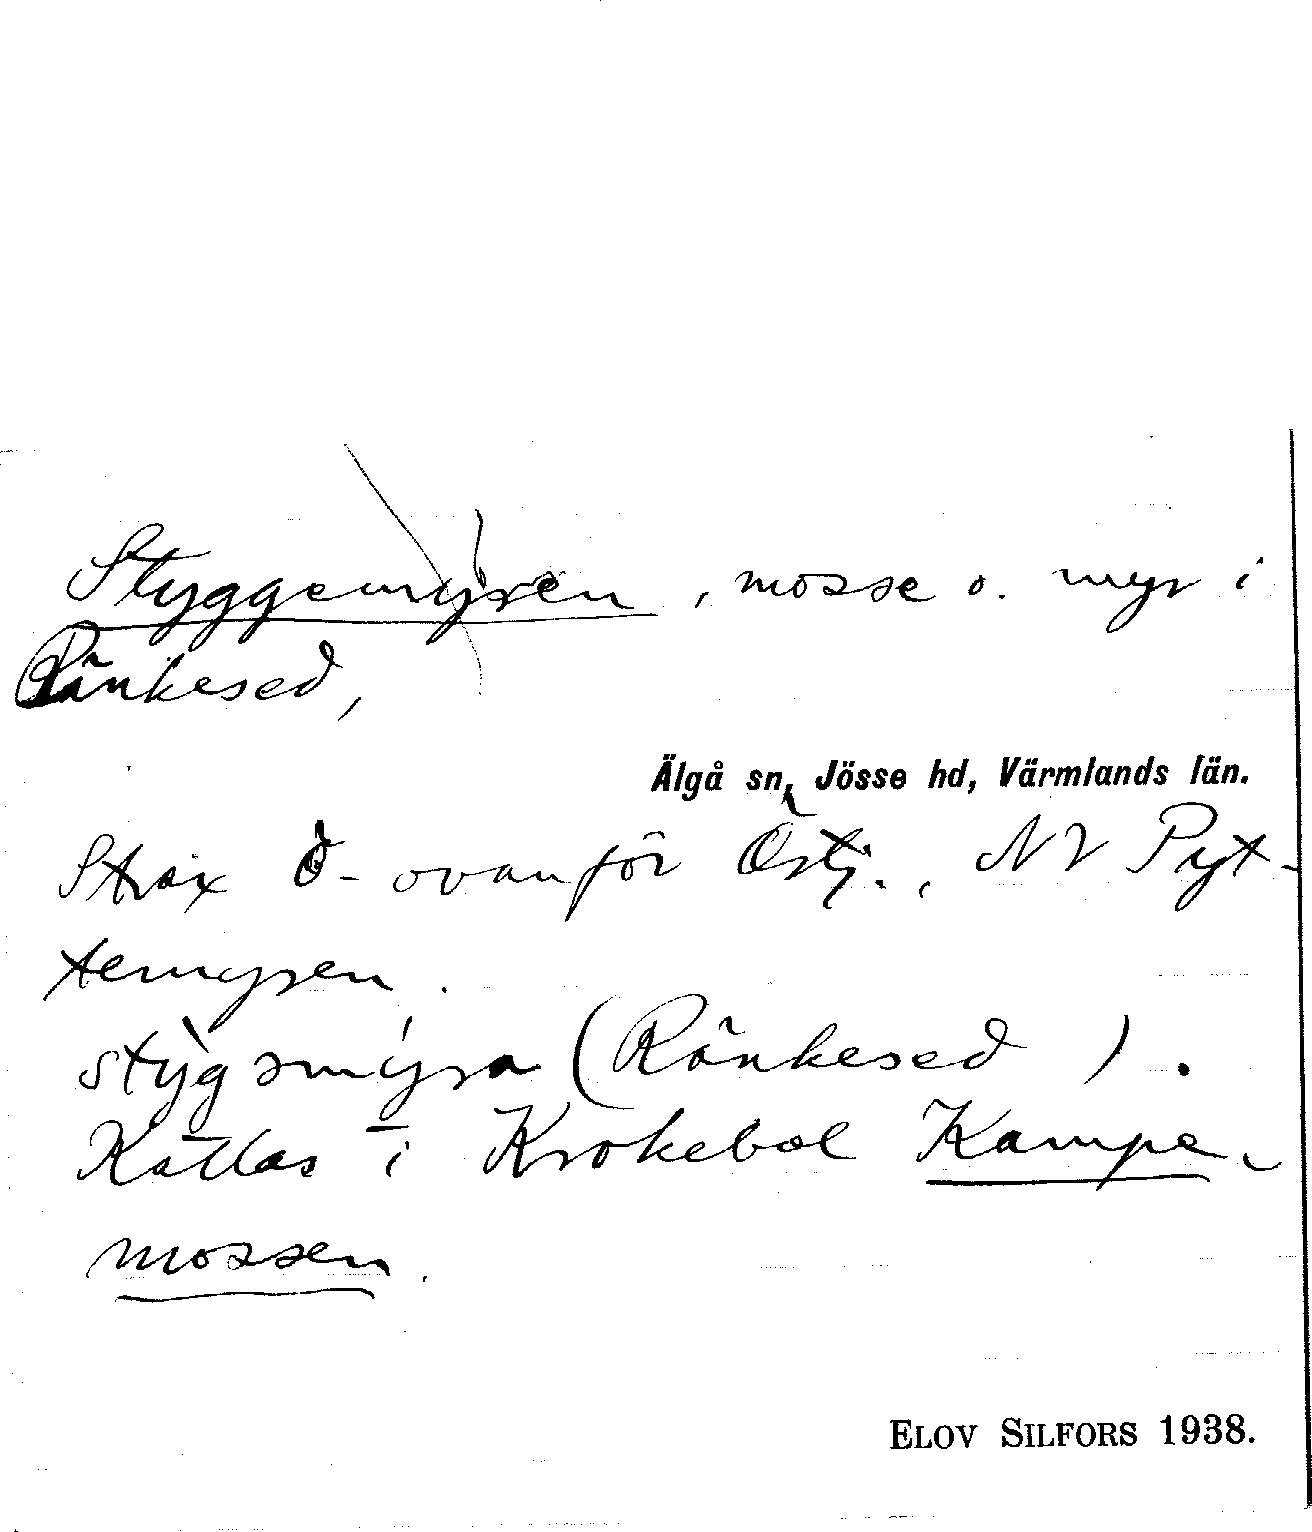 Styggemyren, mosse o. myr i
Ränkesed,
Älgå sn, Jösse hd, Värmlands län.
Strax Ö- ovanför Östj., NV Pyt-
temyren.
(Ränkesed).
Kallas i Krokebol Kampe-
mossen.
ELOV SILFORS 1938.